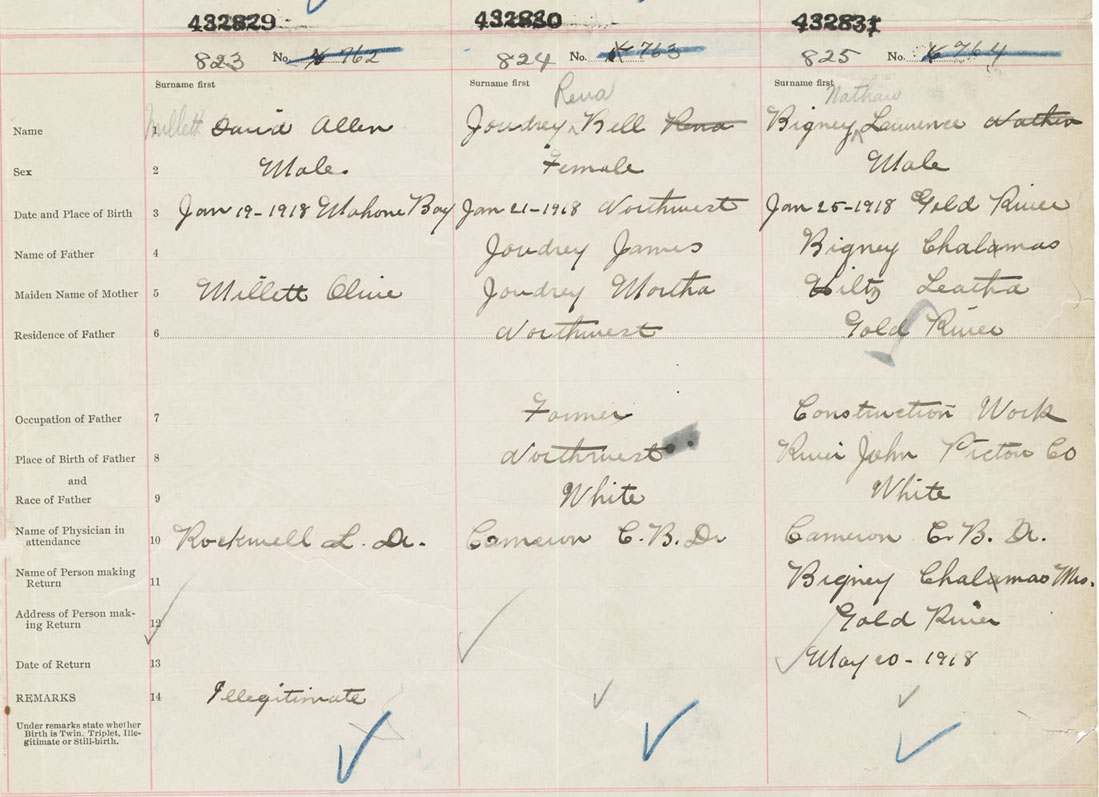 432829 432830 432831
823 No. K 762 824 No. K 763 825 No. K 764
Surname first Surname first Surname first
Rena Nathan
Name 1 Millett David Allen Joudrey Bell Rena Bigney Lawrence Nathan
Sex 2 Male. Female Male
Date and Place of Birth 3 Jan 19-1918 Mahone Bay Jan 21-1918 Northwest Jan 25-1918 Gold River
Name of Father 4 Joudrey James Bigney Chalamas
Maiden Name of Mother 5 Millett Olive Joudrey Martha Hiltz Leatha
Residence of Father 6 Northwest Gold River
Occupation of Father 7 Farmer Construction Work
Place of Birth of Father 8 Northwest River John Pictou Co
and
Race of Father 9 White White
Name of Physician in
attendance 10 Rockwell L. Dr. Cameron C.B. Dr Cameron C.B. Dr.
Name of Person making
Return 11 Bigney Chalamas Mrs.
Address of Person mak-
ing Return 12 Gold River
Date of Return 13 May 20-1918
REMARKS 14 Illegitimate
Under remarks state whether
Birth is Twin. Triplet, Ille-
gitimate or Still-birth.